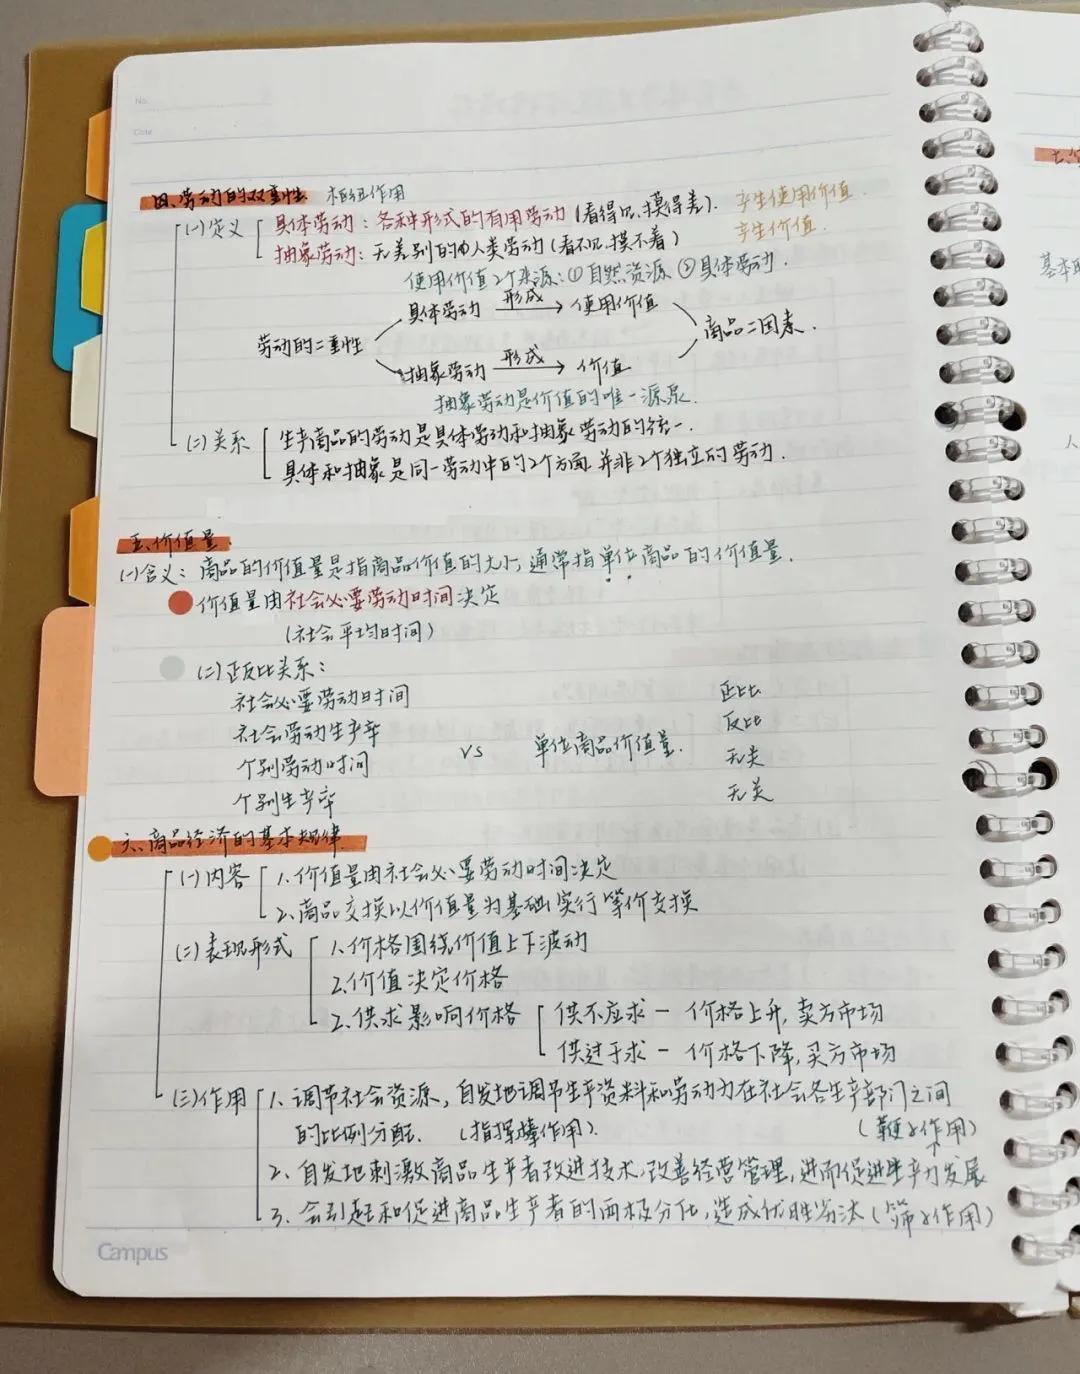 No.
Date
四、劳动的双重性 相纽作用
(一)定义 具体劳动：各种形式的有用劳动(看得见、摸得差). 产生使用价值.
抽象劳动：无差别的的人类劳动(看不见摸不着) 产生价值.
使用价值2个来源:①自然资源 ②具体劳动.
具体劳动 形成→ 使用价值
劳动的二重性 商品二因素.
抽象劳动 形成→ 价值
抽象劳动是价值的唯一源泉.
(二)关系 生产商品的劳动是具体劳动和抽象劳动的统一.
具体和抽象是同一劳动中的2个方面,并非2个独立的劳动.
五、价值量.
(一)含义：商品的价值量是指商品价值的大小,通常指单位商品的价值量.
价值量由社会必要劳动时间决定
(社会平均时间)
(二)正反比关系：
社会必要劳动时间 正比
社会劳动生产率 反比
VS 单位商品价值量.
个别劳动时间 无关
个别生产率 无关
六、商品经济的基本规律
(一)内容 1.价值量由社会必要劳动时间决定
2.商品交换以价值量为基础,实行等价交换
(二)表现形式 1.价格围绕价值上下波动
2.价值决定价格
2.供求影响价格 供不应求 — 价格上升,卖方市场
供过于求 — 价格下降,买方市场
(三)作用 1.调节社会资源,自发地调节生产资料和劳动力在社会各生产部门之间
的比例分配. (指挥棒作用). (鞭子作用)
2.自发地刺激商品生产者改进技术,改善经营管理,进而促进生产力发展
3.会引起和促进商品生产者的两极分化,造成优胜劣汰(筛子作用)
Campus
七、
基本
人